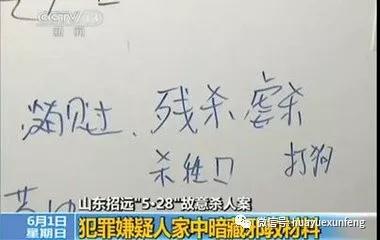 CCTV 13
新闻
没有见过、残杀 虐杀
杀牲口 打狗
山东招远“5·28”故意杀人案
6月1日
星期日
犯罪嫌疑人家中暗藏邪教材料
微信号: huayuexunfeng